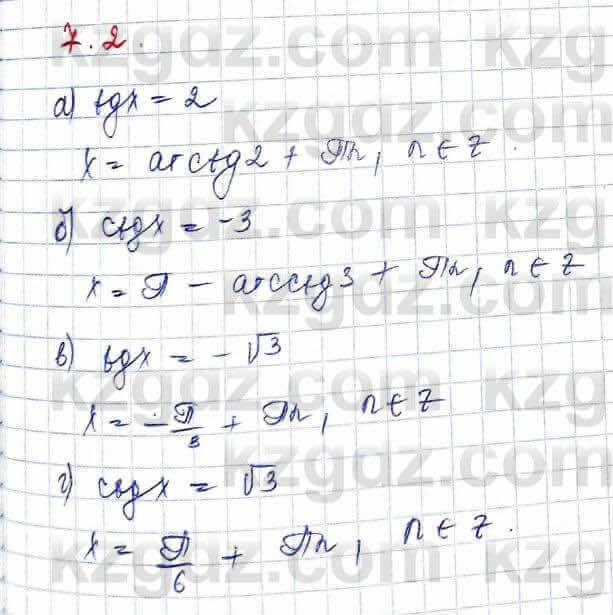 7.2.
а) tgx = 2
x = arctg2 + Пn, n ∈ Z.
б) ctgx = -3
x = П - arcctg3 + Пn, n ∈ Z
в) tgx = -√3
x = -П/3 + Пn, n ∈ Z
г) ctgx = √3
x = П/6 + Пn, n ∈ Z.
kzgdz.com